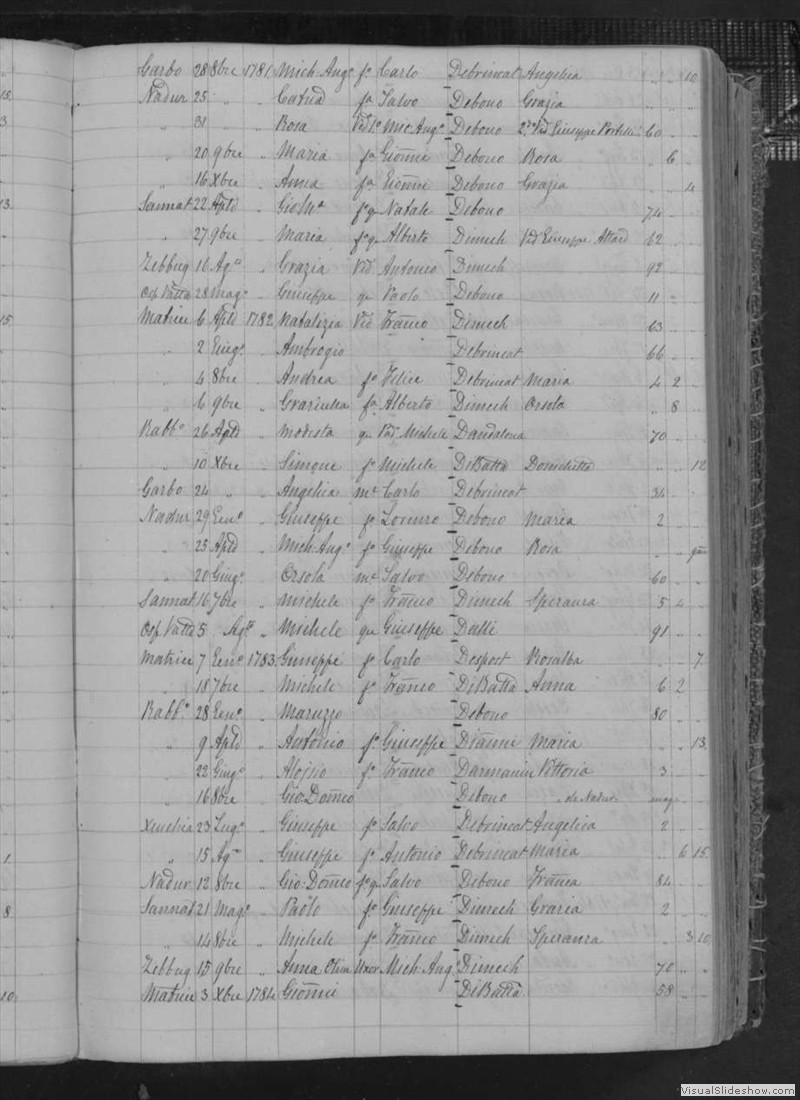 15
3
13
15
1
8
10
Garbo 28 8bre 1781 Mich Ang.o f.o Carlo Debrincat Angelica " " 10
Nadur 25 " " Catad f.a Salvo Debono Grazia " " "
" 31 " " Rosa Vid 1.o Mic Ang.o Debono 2.o Vid Giuseppe Portelli 60
" 20 9bre " Maria f.a Gionni Debono Rosa " 6 "
" 16 Xbre " Anna f.a Gionni Debono Grazia " " 4
Sannat 22 Aple " Gio M.a f.o q Natale Debono 74
" 27 9bre " Maria f.a q Alberto Dimech Vid Giuseppe Attard 62
Zebbug 16 Ag.o " Grazia Vid Antonio Dimech 92
Osp Vatta 28 mag.o " Giuseppe q Paolo Debono 11
Matrice 6 Aple 1782 Natalizia Vid Franco Dimech 63
" 2 Giug.o " Ambrogio Debrincat 66
" 4 8bre " Andrea f.o Felice Debrincat Maria 4 2
" 6 9bre " f.a Alberto Dimech Orsola " 8
Rabb.o 26 Aple " Modesta qu Michele Dandalona 70
" 10 Xbre " Simone f.o Michele DiBatta " " 12
Garbo 24 " " Angelica m.e Carlo Debrincat 34
Nadur 29 Gen.o " Giuseppe f.o Lorenzo Debono Maria 2
" 25 Aple " Mich Ang.o f.o Giuseppe Debono Rosa
" 20 Giug.o " Orsola m.e Salvo Debono 60
Sannat 16 7bre " Michele f.o Franco Dimech Speranza 5 4
Osp Vatta 5 Ag.o " Michele qu Giuseppe Dalli 91
Matrice 7 Gen.o 1783 Giuseppe f.o Carlo Despost Rosalba " " 7
" 18 7bre " Michele f.o Franco DiBatta Anna 6 2
Rabb.o 28 Gen.o " Maruzzo Debono 80
" 9 Aple " Antonio f.o Giuseppe Dianni Maria " " 13
" 22 Giug.o " Aloisio f.o Franco Darmanin Vittoria 3
" 16 8bre " Gio: Domco Debono de Nadur mag
Xeuchia 23 Lug.o " Giuseppe f.o Salvo Debrincat Angelica 2
" 15 Ag.o " Giuseppe f.o Antonio Debrincat Maria " 6 15
Nadur 12 8bre " Gio: Domco f.o q Salvo Debono Franca 84
Sannat 21 Mag.o " Paolo f.o Giuseppe Dimech Grazia 2
" 14 8bre " Michele f.o Franco Dimech Speranza " 3 10
Zebbug 15 9bre " Anna Oliva Uxor Mich Ang.o Dimech 70
Matrice 3 Xbre 1784 Gionni DiBatta 58
VisualSlideshow.com